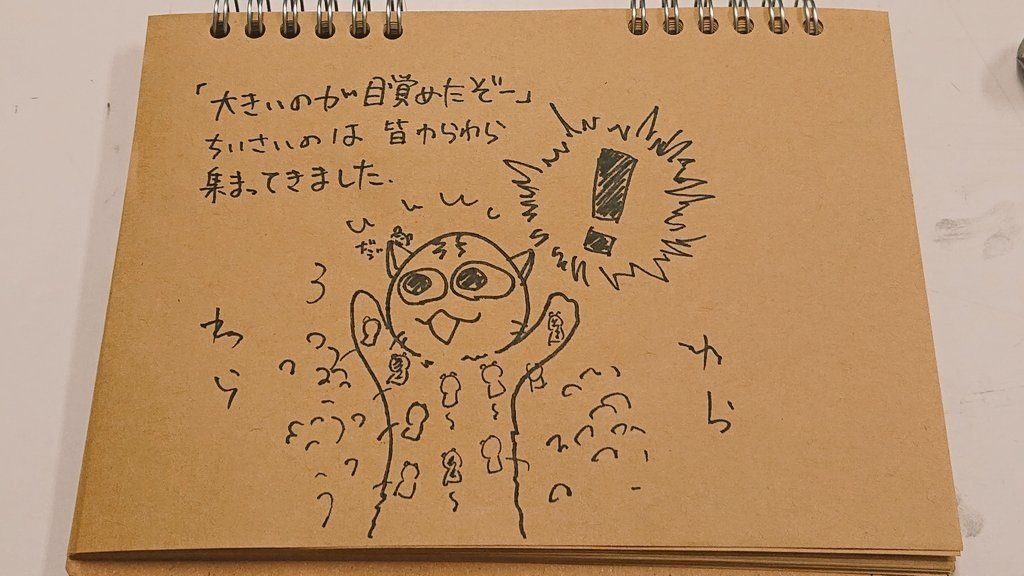 「大きいのが目覚めたぞー」
ちいさいのは 皆わらわら
集まってきました.
わら
わら